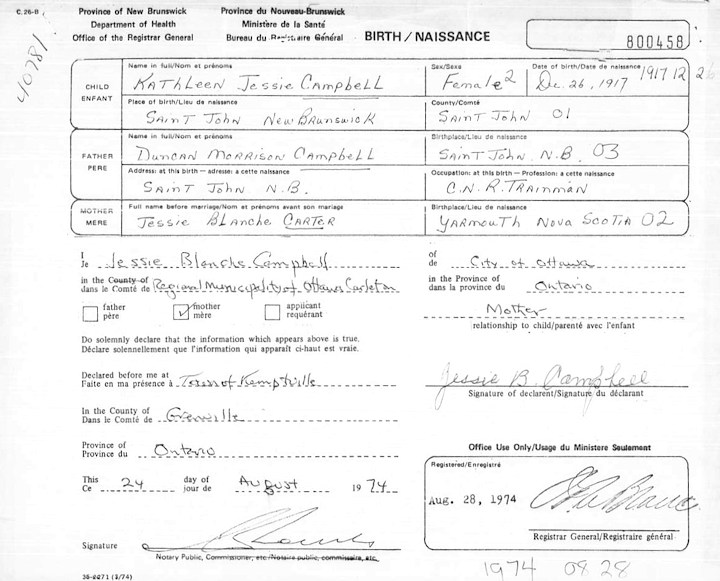 C.26-B
Province of New Brunswick Province du Nouveau-Brunswick
Department of Health Ministère de la Santé
Office of the Registrar General Bureau du Registraire Général BIRTH / NAISSANCE
40781
800458
CHILD
ENFANT
Name in full/Nom et prénoms
Kathleen Jessie Campbell
Sex/Sexe
Female 2
Date of birth/Date de naissance
Dec. 26, 1917 1917 12 26
Place of birth/Lieu de naissance
Saint John New Brunswick
County/Comté
Saint John 01
FATHER
PERE
Name in full/Nom et prénoms
Duncan Morrison Campbell
Birthplace/Lieu de naissance
Saint John N.B. 03
Address: at this birth — adresse: a cette naissance
Saint John N.B.
Occupation: at this birth — Profession: a cette naissance
C.N.R. Trainman
MOTHER
MÈRE
Full name before marriage/Nom et prénoms avant son mariage
Jessie Blanche Carter
Birthplace/Lieu de naissance
Yarmouth Nova Scotia 02
I
Je Jessie Blanche Campbell
of
de City of Ottawa
in the County of
dans le Comté de Regional Municipality of Ottawa Carleton
in the Province of
dans la province du Ontario
father
père
mother
mère
applicant
requérant
Mother
relationship to child/parenté avec l'enfant
Do solemnly declare that the information which appears above is true.
Déclare solennellement que l'information qui apparaît ci-haut est vraie.
Declared before me at
Faite en ma présence à Town of Kemptville
Jessie B. Campbell
Signature of declarent/Signature du déclarant
In the County of
Dans le Comté de Grenville
Province of
Province du Ontario
This
Ce 24 day of
jour de August 1974
Office Use Only/Usage du Ministere Seulement
Registered/Enregistré
Aug. 28, 1974
Registrar General/Registraire général
Signature
Notary Public, Commissioner, etc/Notaire public, commissaire, etc.
36-6071 (3/74)
1974 08 28